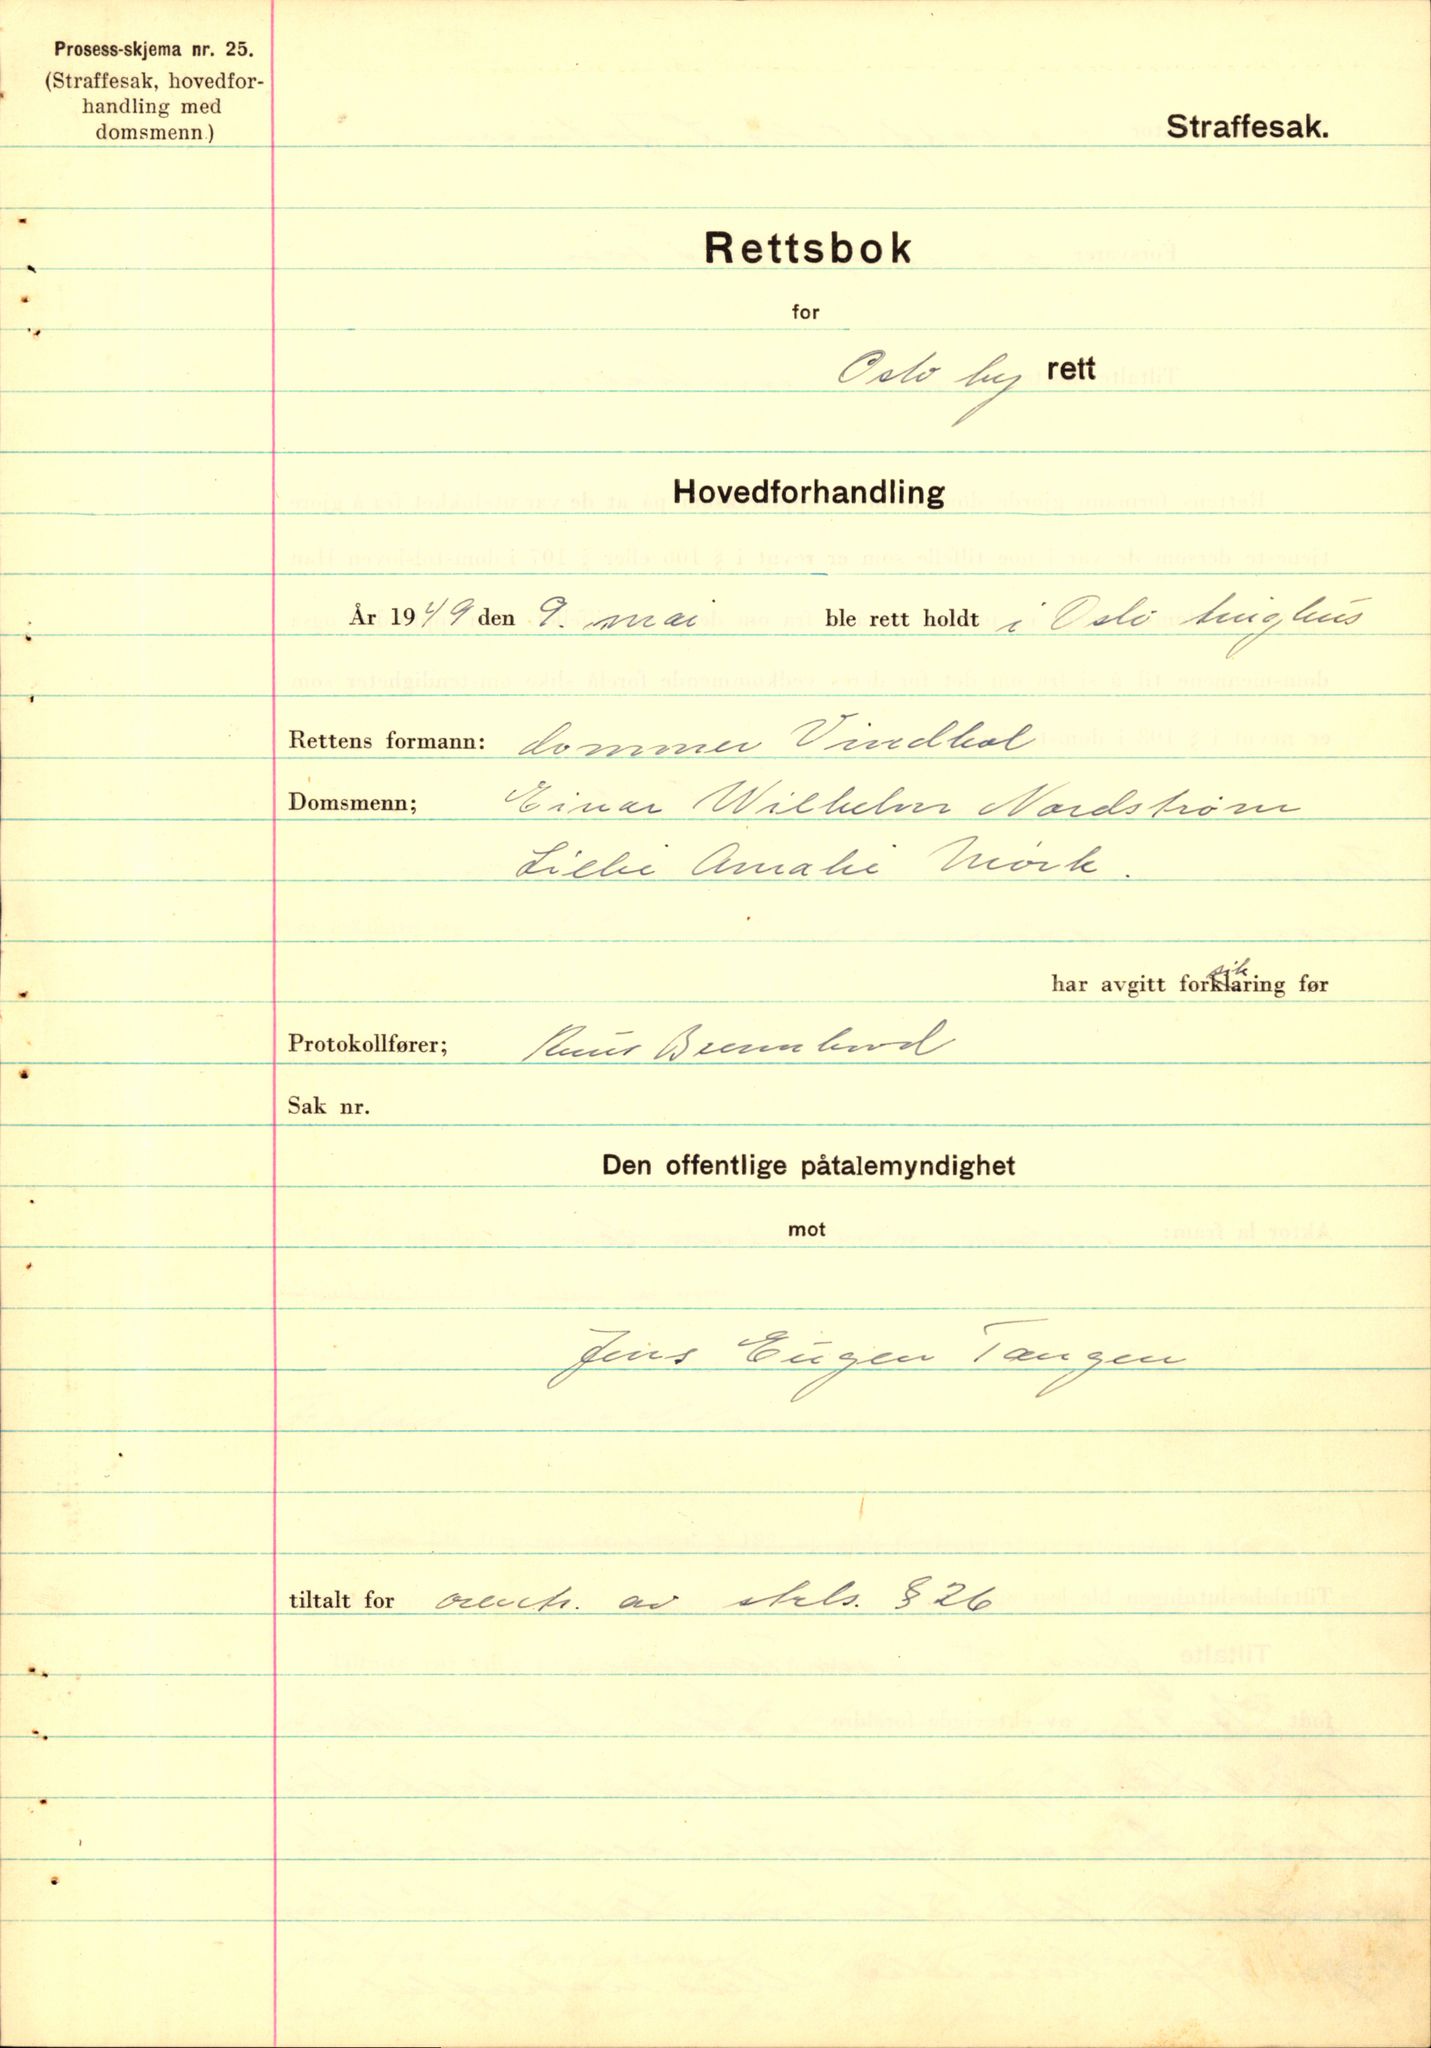 Prosess-skjema nr. 25.
(Straffesak, hovedfor-
handling med
domsmenn.)
Straffesak.
Rettsbok
for
Oslo by rett
Hovedforhandling
År 1949 den 9. mai ble rett holdt i Oslo tinghus
Rettens formann: dommer Vindhol
Domsmenn; Einar Wilhelm Nordstrøm
Lilli Amalie Mørk.
har avgitt forsikring før
Protokollfører;
Sak nr.
Den offentlige påtalemyndighet
mot
Jens Eugen Tangen
tiltalt for overtr. av strls. § 26